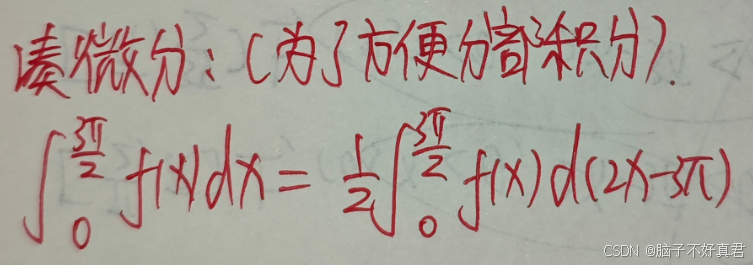 凑微分：（为了方便分部积分）.
∫₀^{3π/2} f(x)dx = 1/2 ∫₀^{3π/2} f(x) d(2x-3π)
CSDN @脑子不好真君